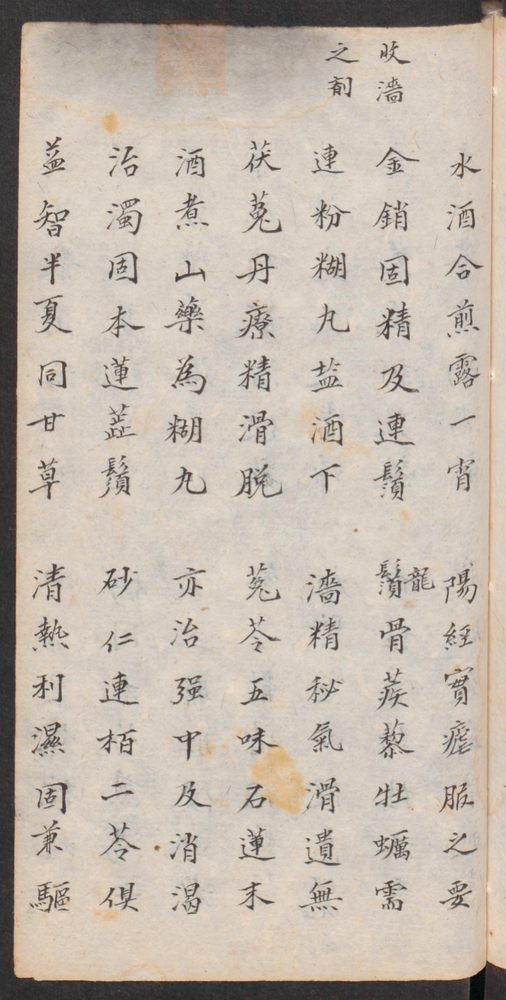 水酒合煎露一宵　陽經實瘧服之要
收濇
之劑
金銷固精及連鬚　鬚龍骨蒺藜牡蠣需
連粉糊丸盐酒下　濇精秘氣滑遺無
茯菟丹療精滑脱　菟苓五味石蓮末
酒煮山藥為糊丸　亦治强中及消渴
治濁固本蓮蕋鬚　砂仁連栢二苓俱
益智半夏同甘草　清熱利濕固兼驅